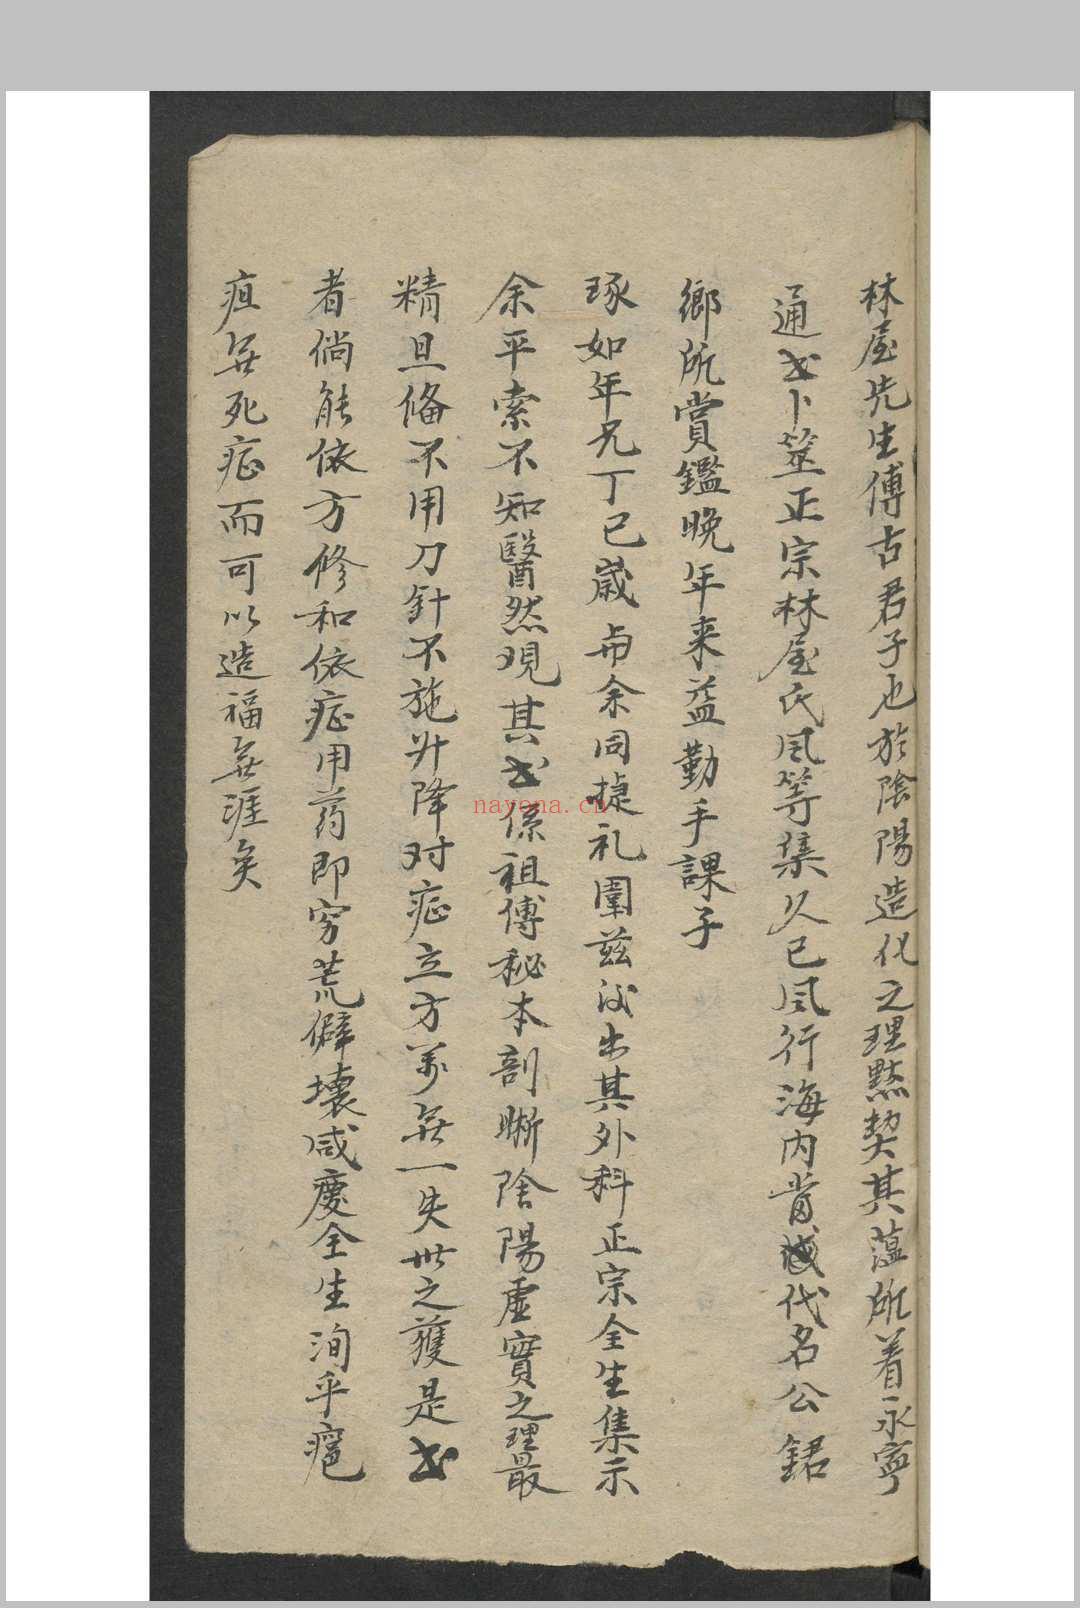 林屋先生傳古君子也於陰陽造化之理黙契其蘊所着永寧
通书卜筮正宗林屋氏風等集久已風行海内當代名公鉅
鄉所賞鑑晚年来益勤手課子
琢如年兄丁已嵗与余同捷礼圍茲汝出其外科正宗全生集示
余平索不知醫然观其书係祖傳秘本剖晰陰陽虛實之理最
精且俻不用刀針不施升降对症立方萬無一失世之獲是书
者倘能依方修和依症用药即穷荒僻壤咸慶全生洵乎瘡
疽無死症而可以造福無涯矣
nayona.cn